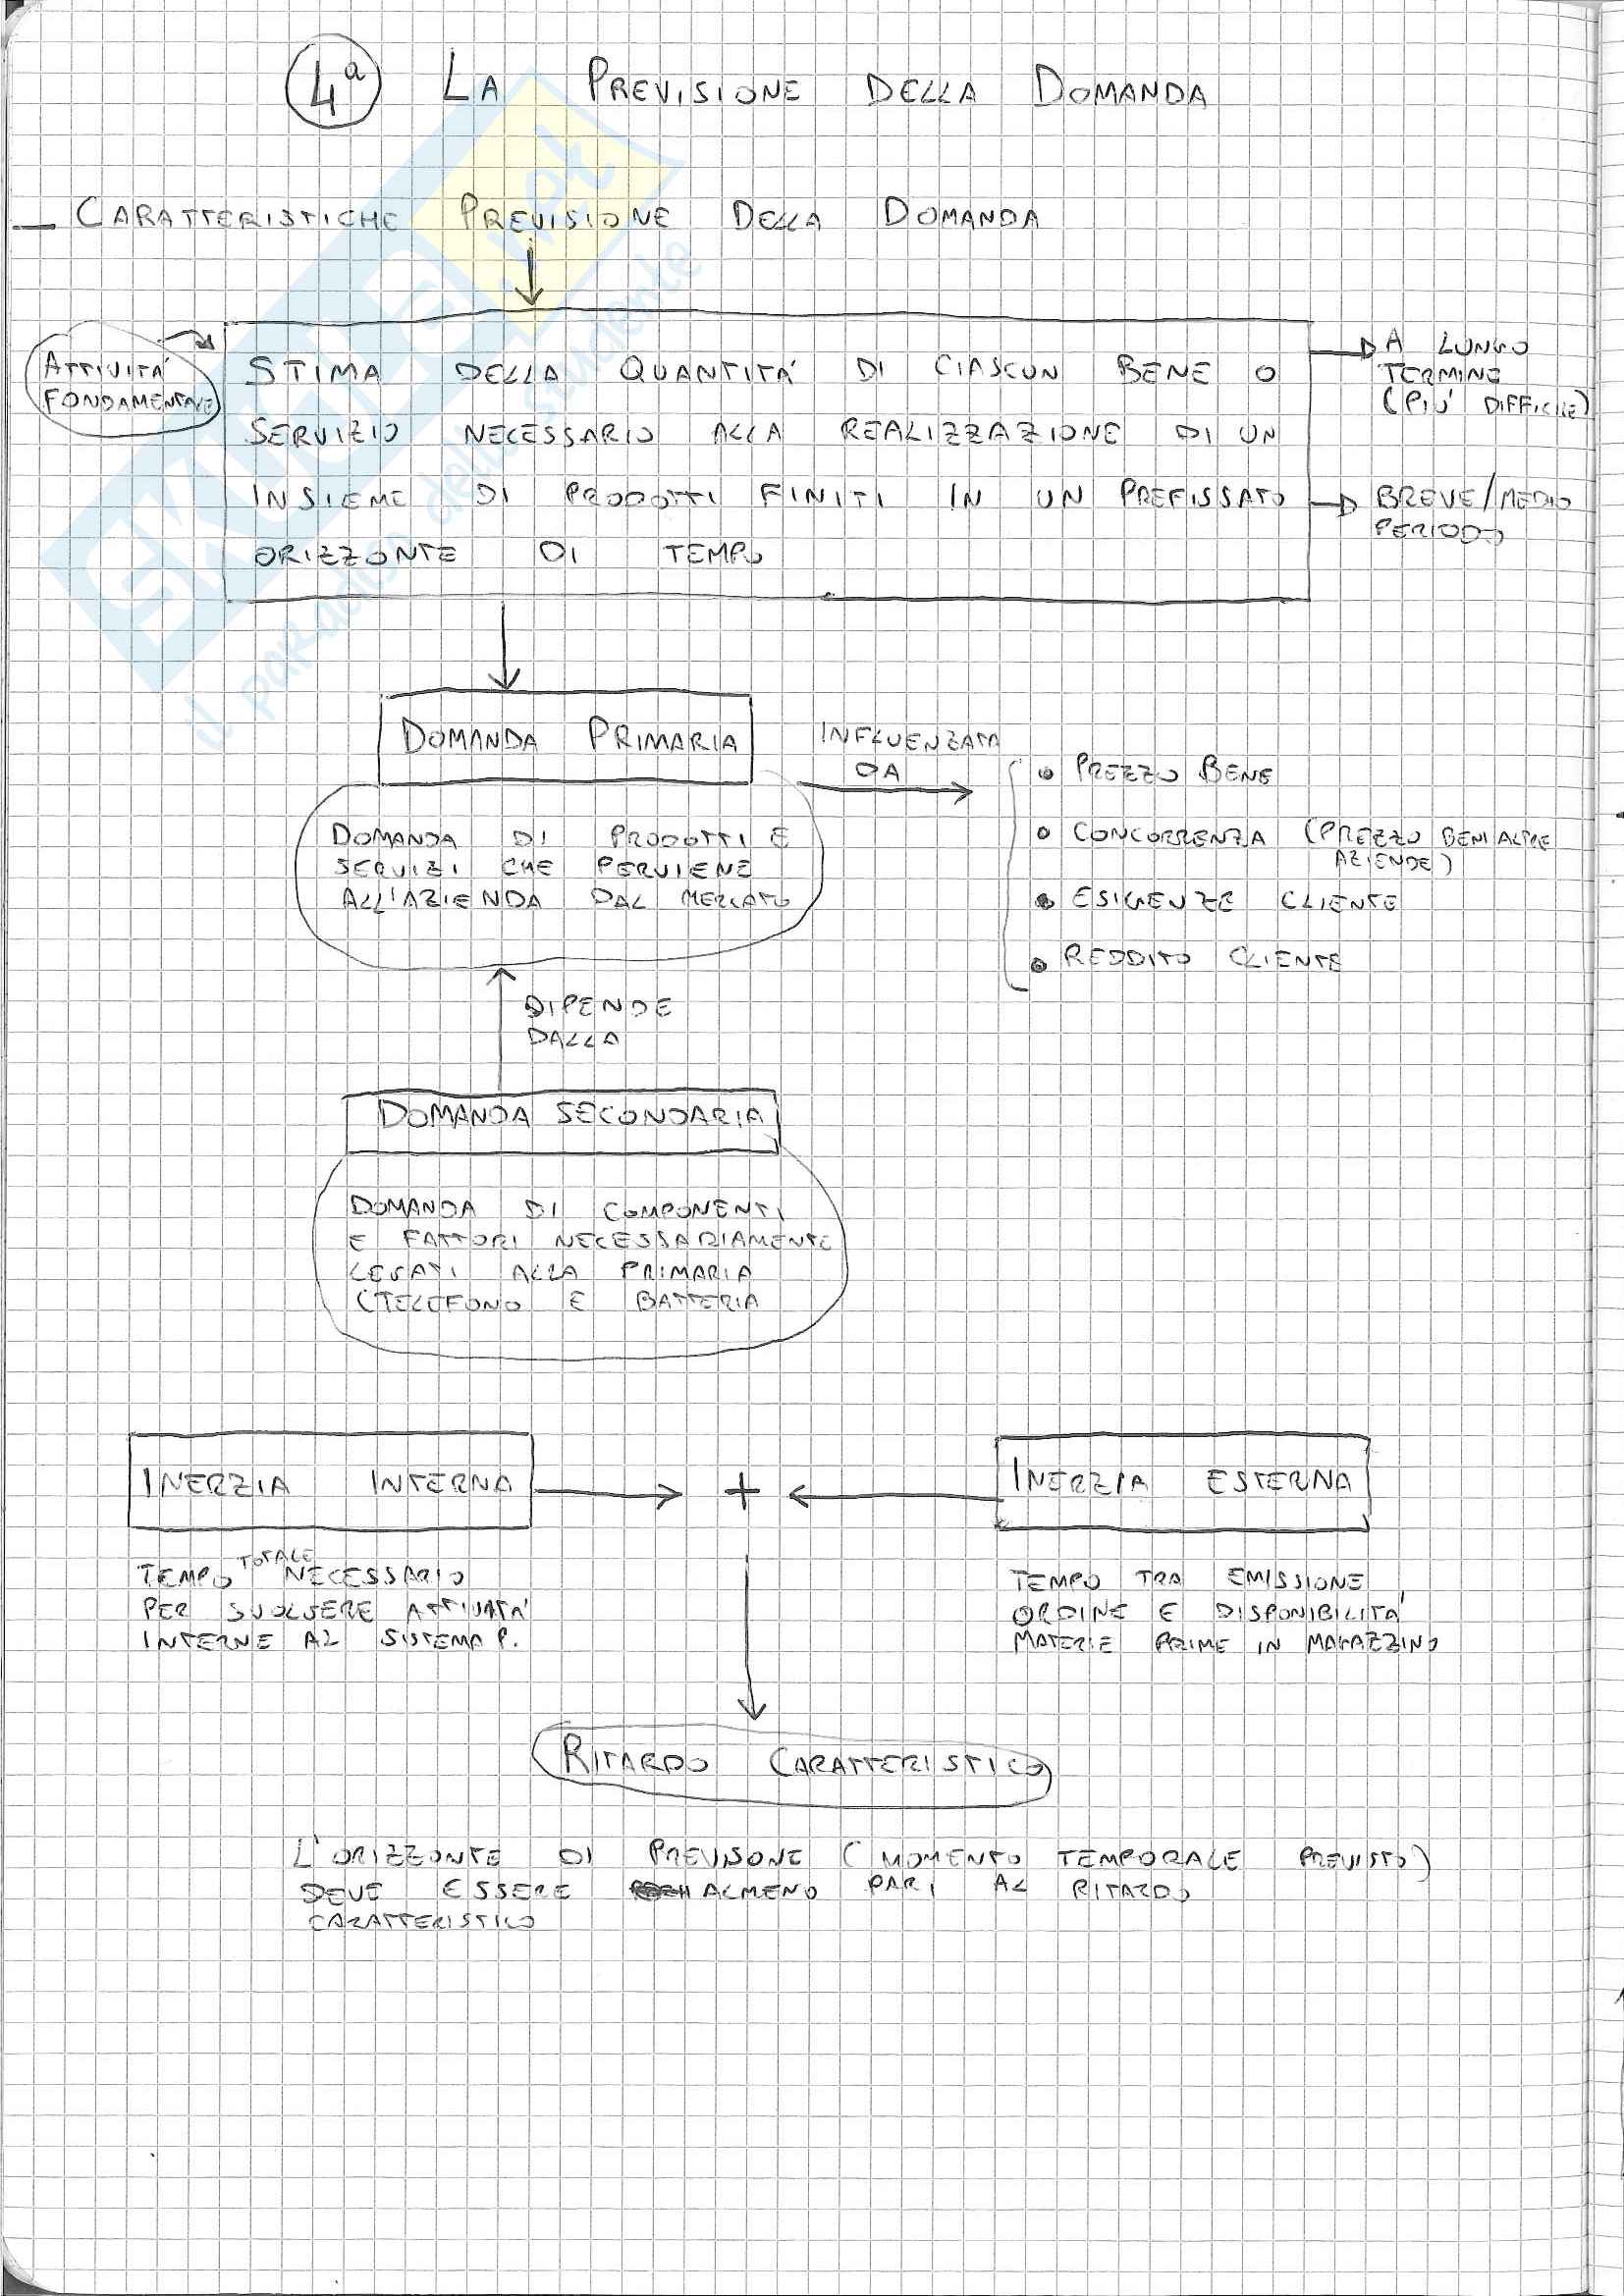 4ª LA PREVISIONE DELLA DOMANDA
— CARATTERISTICHE PREVISIONE DELLA DOMANDA
ATTIVITÀ
FONDAMENTALE
STIMA DELLA QUANTITÀ DI CIASCUN BENE O
SERVIZIO NECESSARIO ALLA REALIZZAZIONE DI UN
INSIEME DI PRODOTTI FINITI IN UN PREFISSATO
ORIZZONTE DI TEMPO
A LUNGO
TERMINE
(PIÙ DIFFICILE)
BREVE/MEDIO
PERIODO
DOMANDA PRIMARIA
DOMANDA DI PRODOTTI E
SERVIZI CHE PERVIENE
ALL'AZIENDA DAL MERCATO
INFLUENZATA
DA
• PREZZO BENE
• CONCORRENZA (PREZZO BENI ALTRE
AZIENDE)
• ESIGENZE CLIENTE
• REDDITO CLIENTE
DIPENDE
DALLA
DOMANDA SECONDARIA
DOMANDA DI COMPONENTI
E FATTORI NECESSARIAMENTE
LEGATI ALLA PRIMARIA
(TELEFONO E BATTERIA
INERZIA INTERNA
+
INERZIA ESTERNA
TEMPO TOTALE NECESSARIO
PER SVOLGERE ATTIVITÀ
INTERNE AL SISTEMA P.
TEMPO TRA EMISSIONE
ORDINE E DISPONIBILITÀ
MATERIE PRIME IN MAGAZZINO
RITARDO CARATTERISTICO
L'ORIZZONTE DI PREVISONE (MOMENTO TEMPORALE PREVISTO)
DEVE ESSERE ALMENO PARI AL RITARDO
CARATTERISTICO
SKUOLA.net
il paradiso dello studente